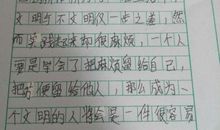 文明与不文明仅一步之差，然
而实践起来却很麻烦，一个人
要是学会了把麻烦留给自己，
把方便留给他人，那么成为一
个文明的人将会是一件很容易